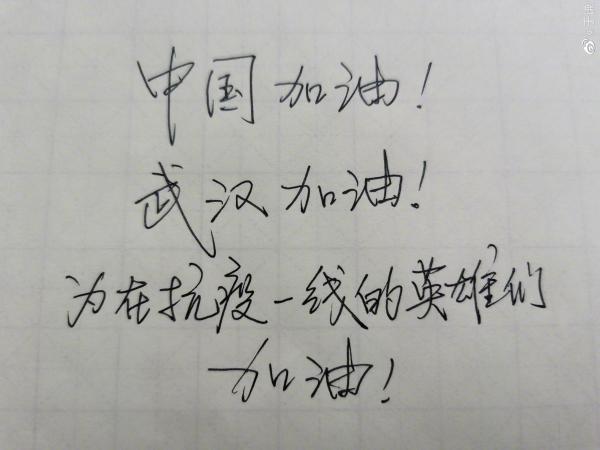 中国加油！
武汉加油！
为在抗疫一线的英雄们
加油！